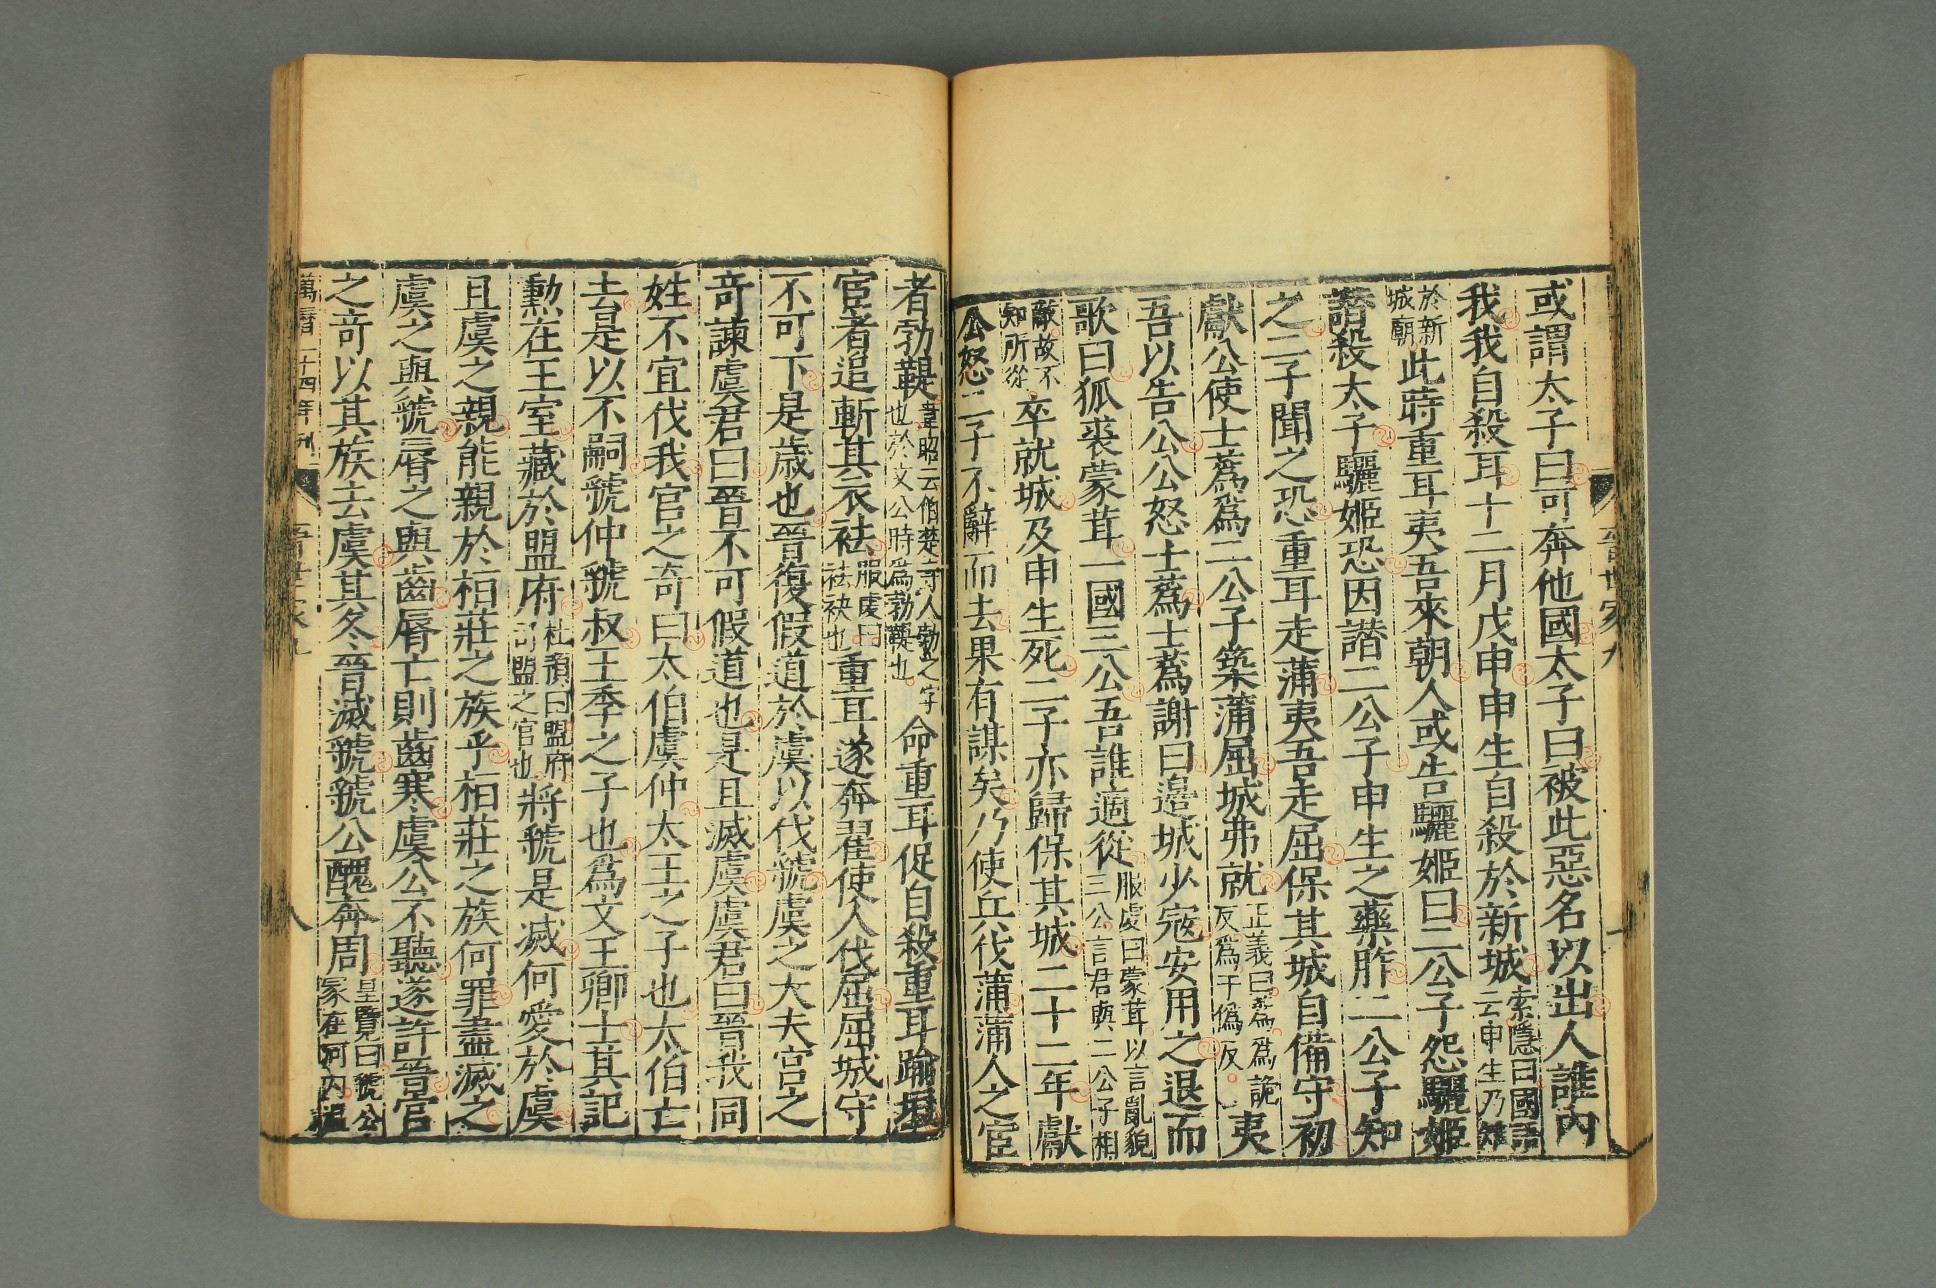 或謂太子曰可奔他國太子曰被此惡名以出人誰內
我我自殺耳十二月戊申申生自殺於新城
索隱曰國語
云申生乃雉
於新
城廟
此時重耳夷吾來朝人或告驪姬曰二公子怨驪姬
譖殺太子驪姬恐因譖二公子申生之藥胙二公子知
之二子聞之恐重耳走蒲夷吾走屈保其城自備守初
獻公使士蒍為二公子築蒲屈城弗就
正義曰蒍為詭
反為于偽反
夷
吾以告公公怒士蒍士蒍謝曰邊城少寇安用之退而
歌曰狐裘蒙茸一國三公吾誰適從
服虔曰蒙茸以言亂貌
三公言君與二公子相
敵故不
知所從
卒就城及申生死二子亦歸保其城二十二年獻
公怒二子不辭而去果有謀矣乃使兵伐蒲蒲人之宦
者勃鞮
韋昭云伯楚寺人勃之字
也於文公時為勃鞮也
命重耳促自殺重耳踰垣
宦者追斬其衣袪
服虔曰
袪袂也
重耳遂奔翟使人伐屈屈城守
不可下是歲也晉復假道於虞以伐虢虞之大夫宮之
奇諫虞君曰晉不可假道也是且滅虞虞君曰晉我同
姓不宜伐我宮之奇曰太伯虞仲太王之子也太伯亡
去是以不嗣虢仲虢叔王季之子也為文王卿士其記
勳在王室藏於盟府
杜預曰盟府
司盟之官也
將虢是滅何愛於虞
且虞之親能親於桓莊之族乎桓莊之族何罪盡滅之
虞之與虢脣之與齒脣亡則齒寒虞公不聽遂許晉宮
之奇以其族去虞其冬晉滅虢虢公醜奔周
皇覽曰虢公
冢在河內溫
萬曆二十四年刊
晉世家九
八